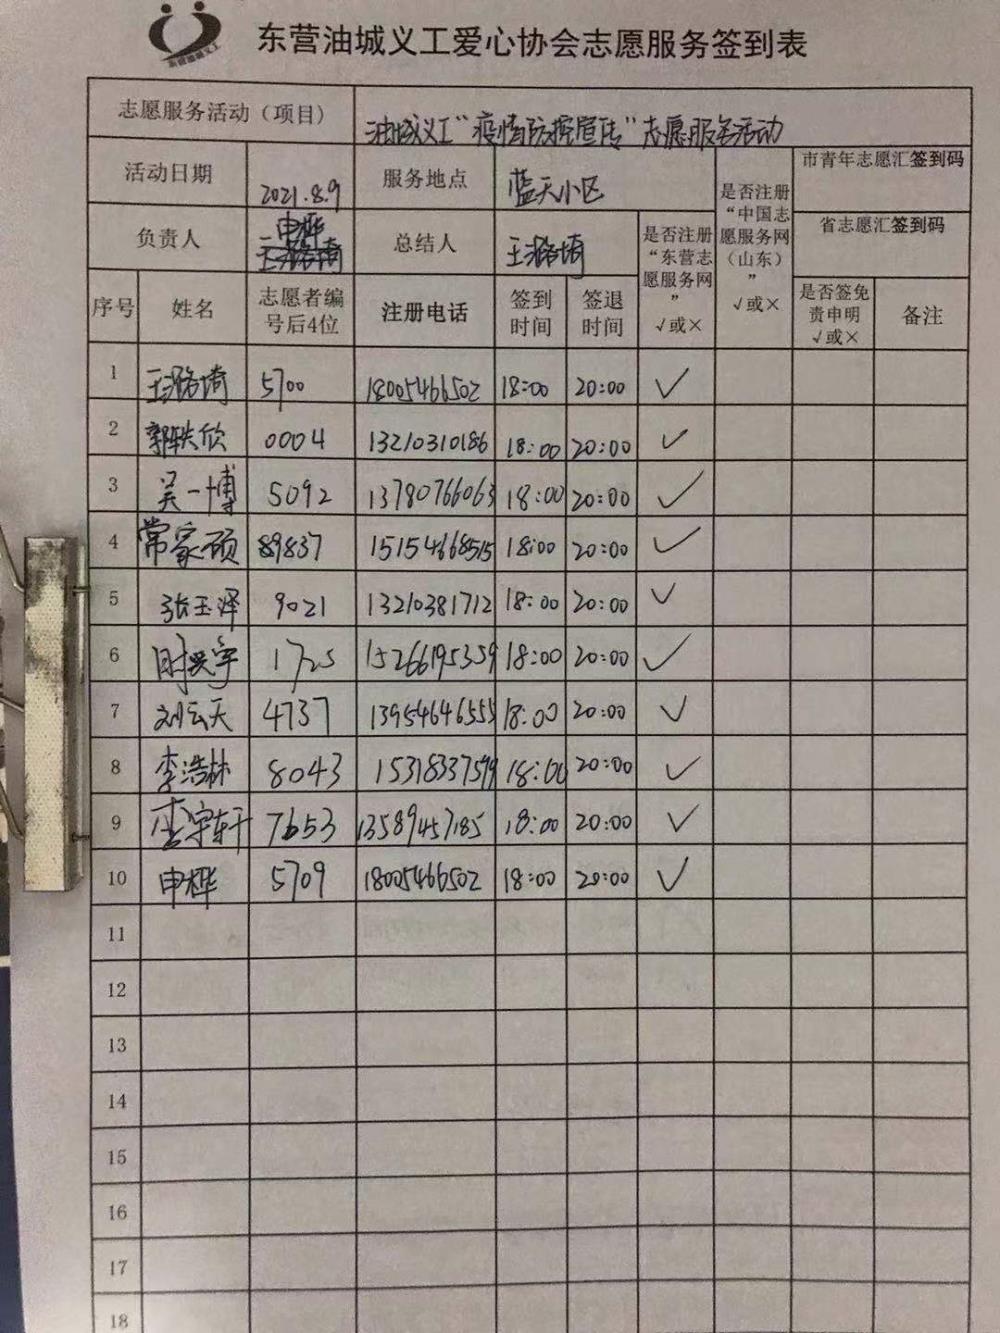 东营油城义工
东营油城义工爱心协会志愿服务签到表
志愿服务活动（项目） 油城义工“疫情防控宣传”志愿服务活动
活动日期 2021.8.9 服务地点 蓝天小区 是否注册“中国志愿服务网（山东）” √或× 市青年志愿汇签到码
省志愿汇签到码
负责人 申桦 总结人 王潞琦 是否注册“东营志愿服务网” √或×
序号 姓名 志愿者编号后4位 注册电话 签到时间 签退时间 是否签免责申明 √或× 备注
1 王潞琦 5700 18005466502 18:00 20:00 ✓
2 郭轶欣 0004 13210310186 18:00 20:00 ✓
3 吴一博 5092 13780766063 18:00 20:00 ✓
4 常家硕 89837 15154668515 18:00 20:00 ✓
5 张玉泽 9021 13210381712 18:00 20:00 ✓
6 时奕宇 1725 15266195359 18:00 20:00 ✓
7 刘云天 4737 13954646555 18:00 20:00 ✓
8 李浩林 8043 15318337599 18:00 20:00 ✓
9 李宇轩 7653 13589457185 18:00 20:00 ✓
10 申桦 5709 18005466502 18:00 20:00 ✓
11
12
13
14
15
16
17
18